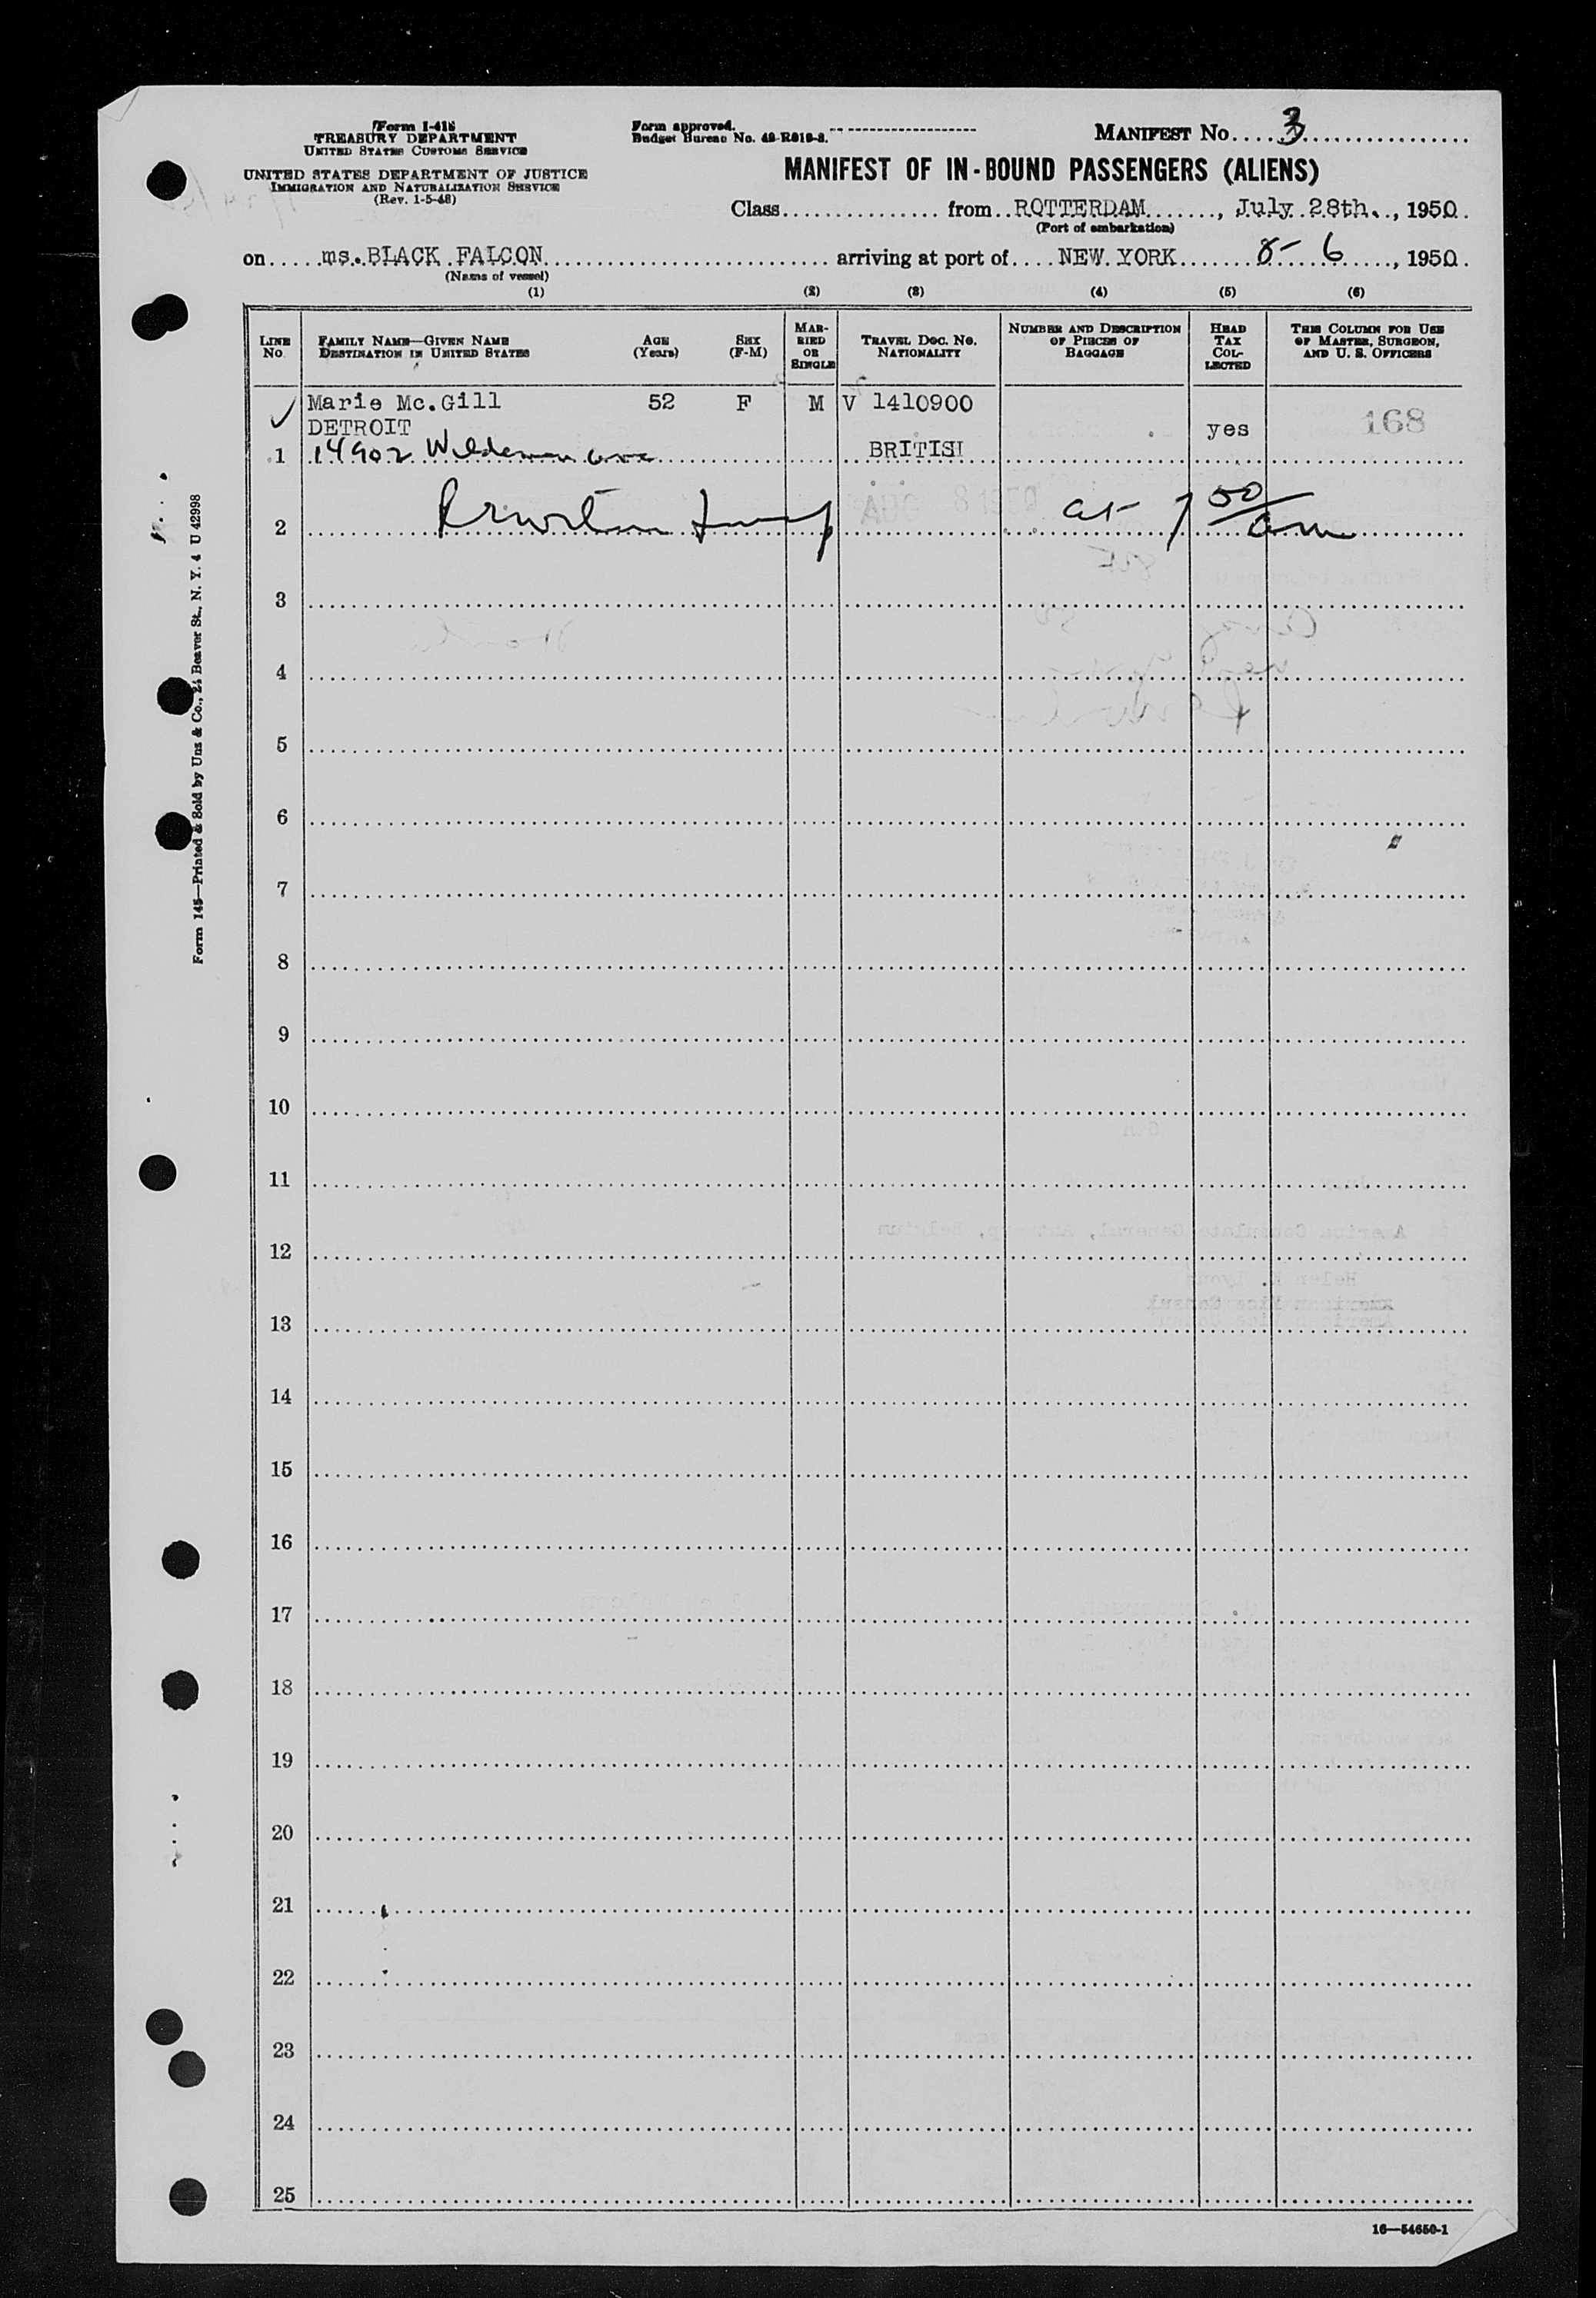 Form I-415
TREASURY DEPARTMENT
UNITED STATES CUSTOMS SERVICE
UNITED STATES DEPARTMENT OF JUSTICE
IMMIGRATION AND NATURALIZATION SERVICE
(Rev. 1-5-48)
Form approved.
Budget Bureau No. 43-R019-3.
MANIFEST No. 3
MANIFEST OF IN-BOUND PASSENGERS (ALIENS)
Class from ROTTERDAM, July 28th., 1950.
(Port of embarkation)
on ms. BLACK FALCON arriving at port of NEW YORK 8-6, 1950.
(Name of vessel)
(1) (2) (3) (4) (5) (6)
LINE No. FAMILY NAME—GIVEN NAME DESTINATION IN UNITED STATES AGE (Years) SEX (F-M) MARRIED OR SINGLE TRAVEL DOC. NO. NATIONALITY NUMBER AND DESCRIPTION OF PIECES OF BAGGAGE HEAD TAX COLLECTED THIS COLUMN FOR USE OF MASTER, SURGEON, AND U. S. OFFICERS
Marie Mc.Gill 52 F M V 1410900
DETROIT yes 168
1 14902 ave BRITISH
AUG 6 1950
2 at 7 50/am
3
4
5
6
7
8
9
10
11
12
13
14
15
16
17
18
19
20
21
22
23
24
25
16—54650-1
Form 145—Printed & Sold by Uns & Co., 24 Beaver St., N. Y. 4 U 42998